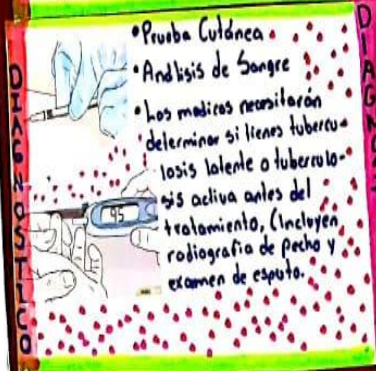 DIAGNOSTICO
• Prueba Cutánea
• Análisis de Sangre
• Los medicos necesitarán
determinar si tienes tubercu-
losis latente o tuberculo-
sis activa antes del
tratamiento, (Incluyen
radiografia de pecho y
examen de esputo.
95
DIAGNOS